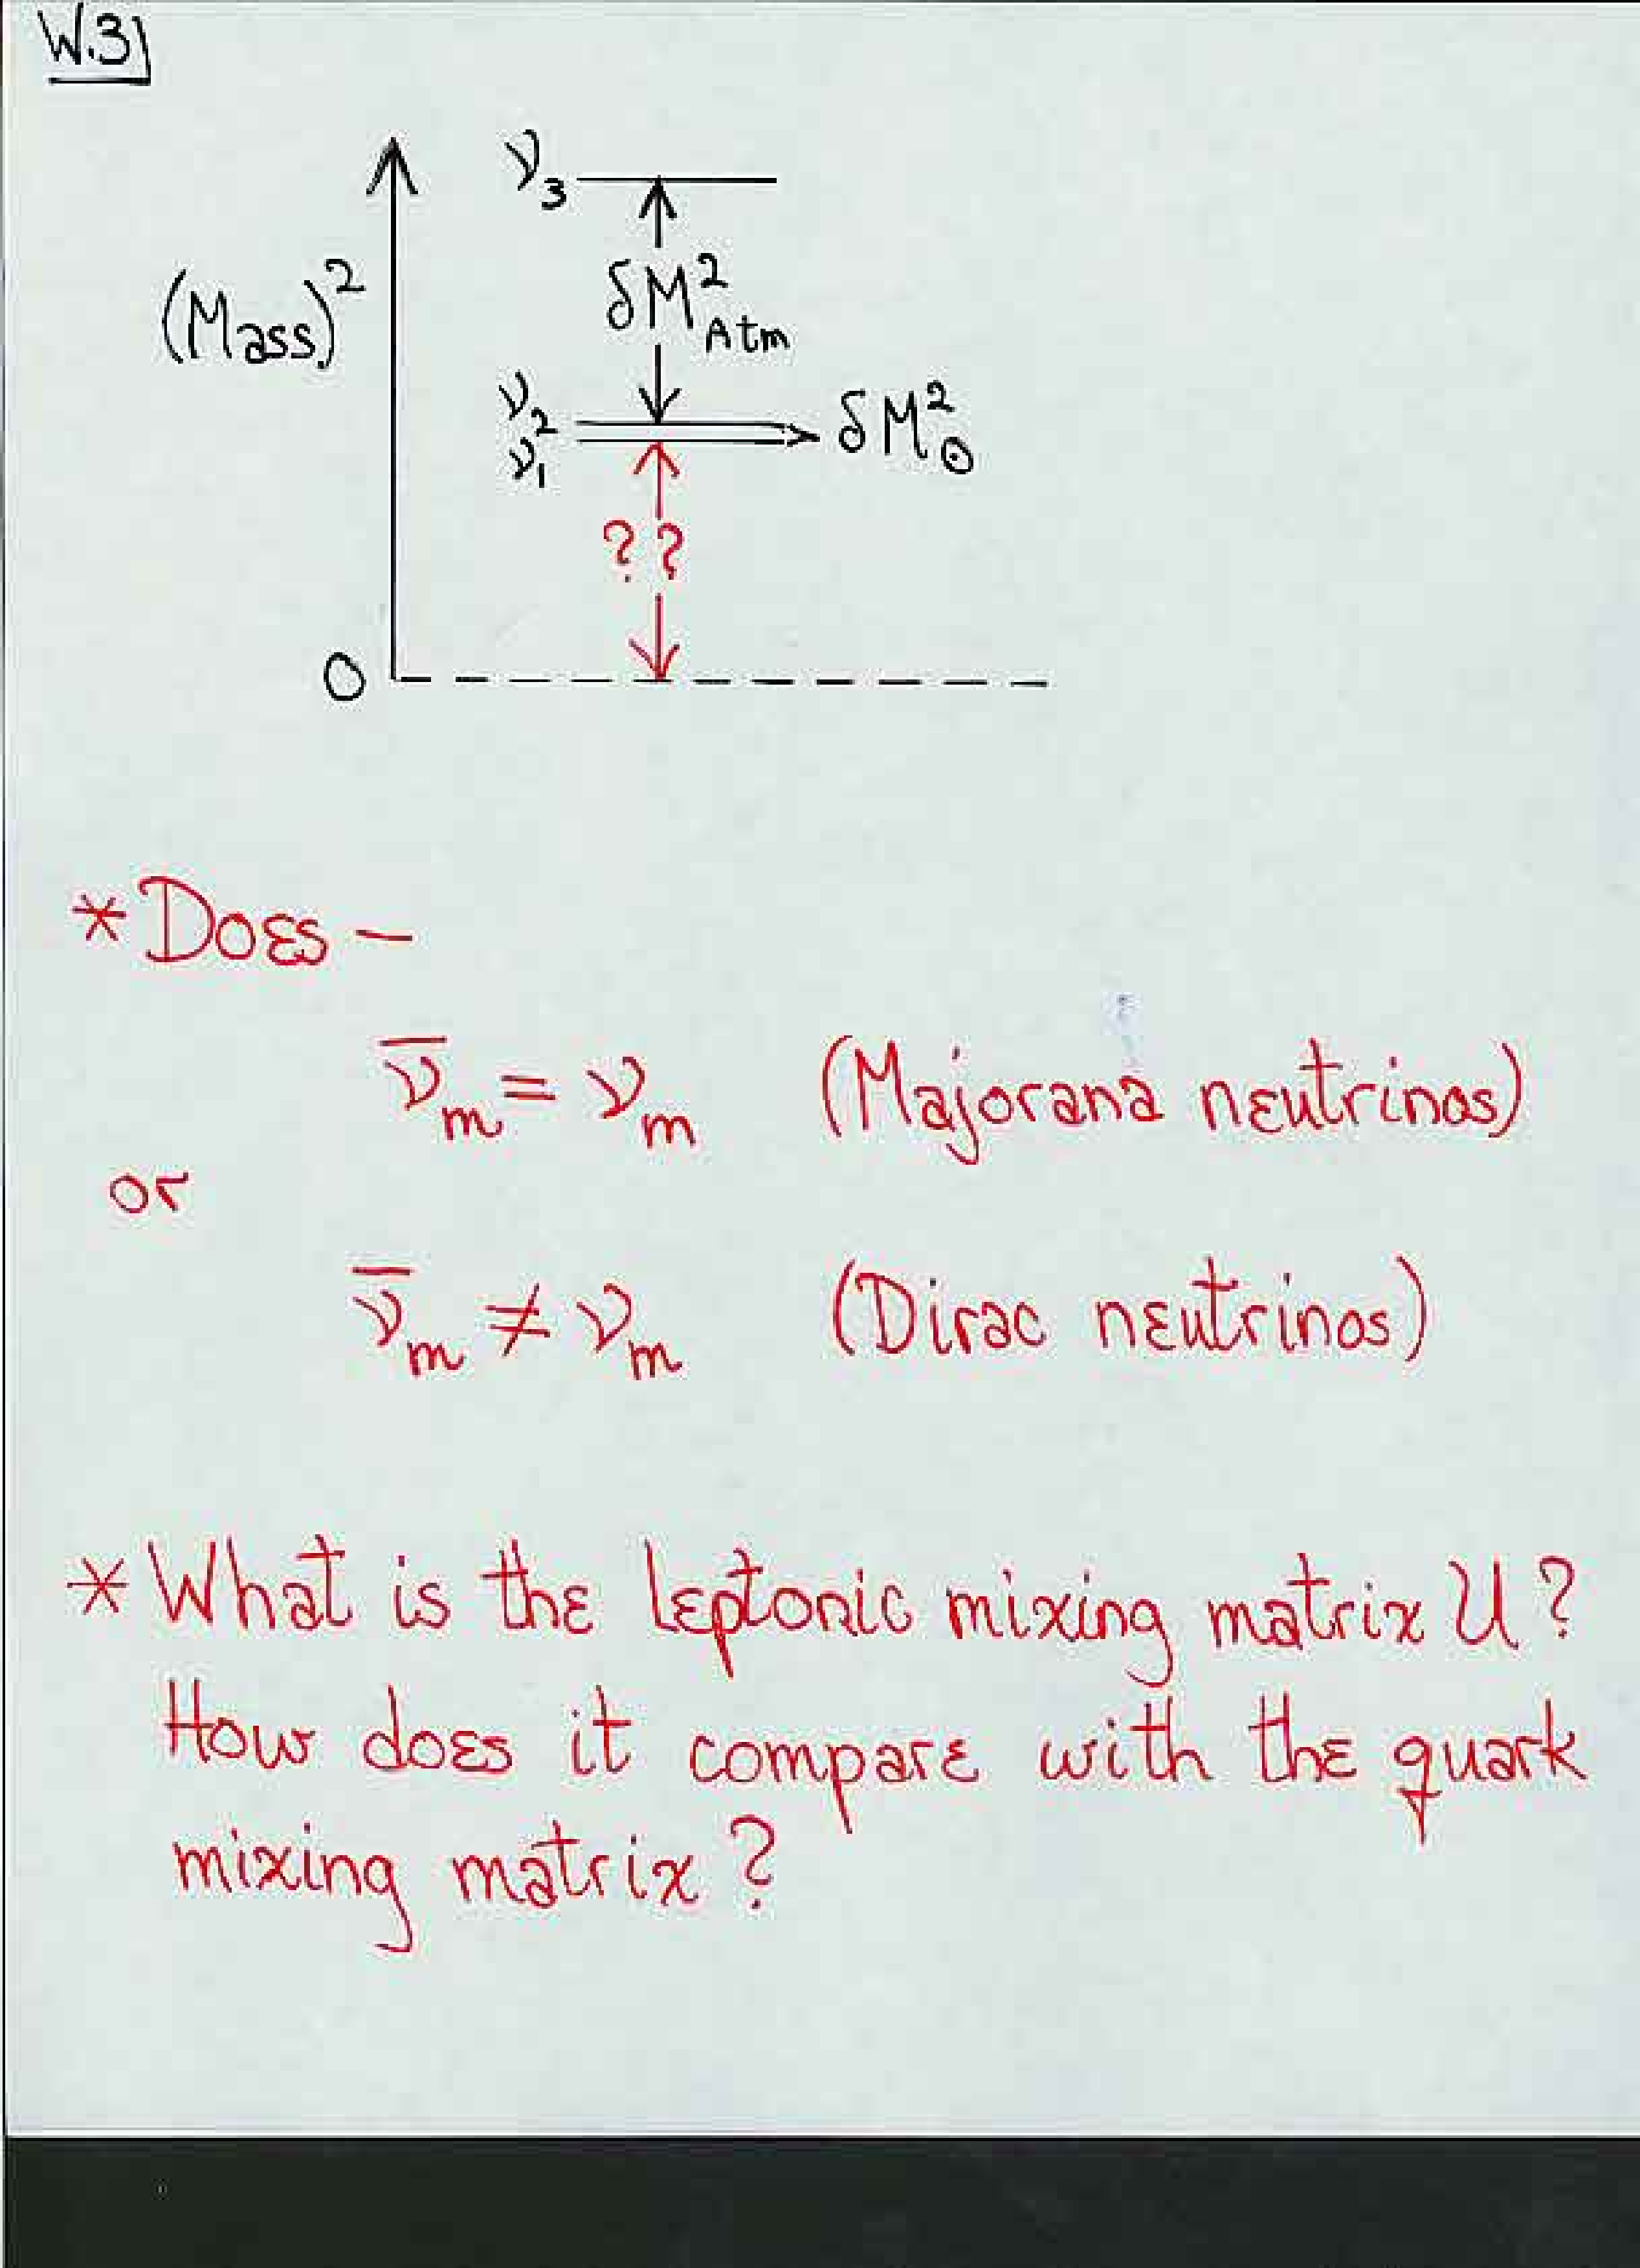 W.3
ν₃
(Mass)²
δM²Atm
ν₂
ν₁
δM²⊙
??
0
* Does —
ν̅m = νm (Majorana neutrinos)
or
ν̅m ≠ νm (Dirac neutrinos)
* What is the leptonic mixing matrix U?
How does it compare with the quark
mixing matrix?